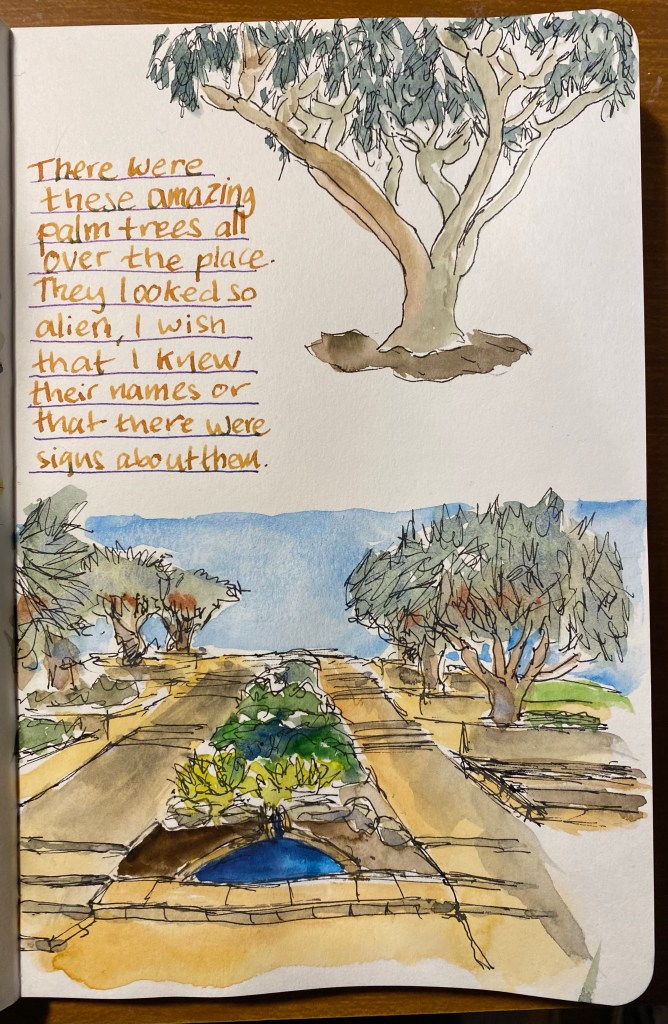 There were
these amazing
palm trees all
over the place.
They looked so
alien, I wish
that I knew
their names or
that there were
signs about them.